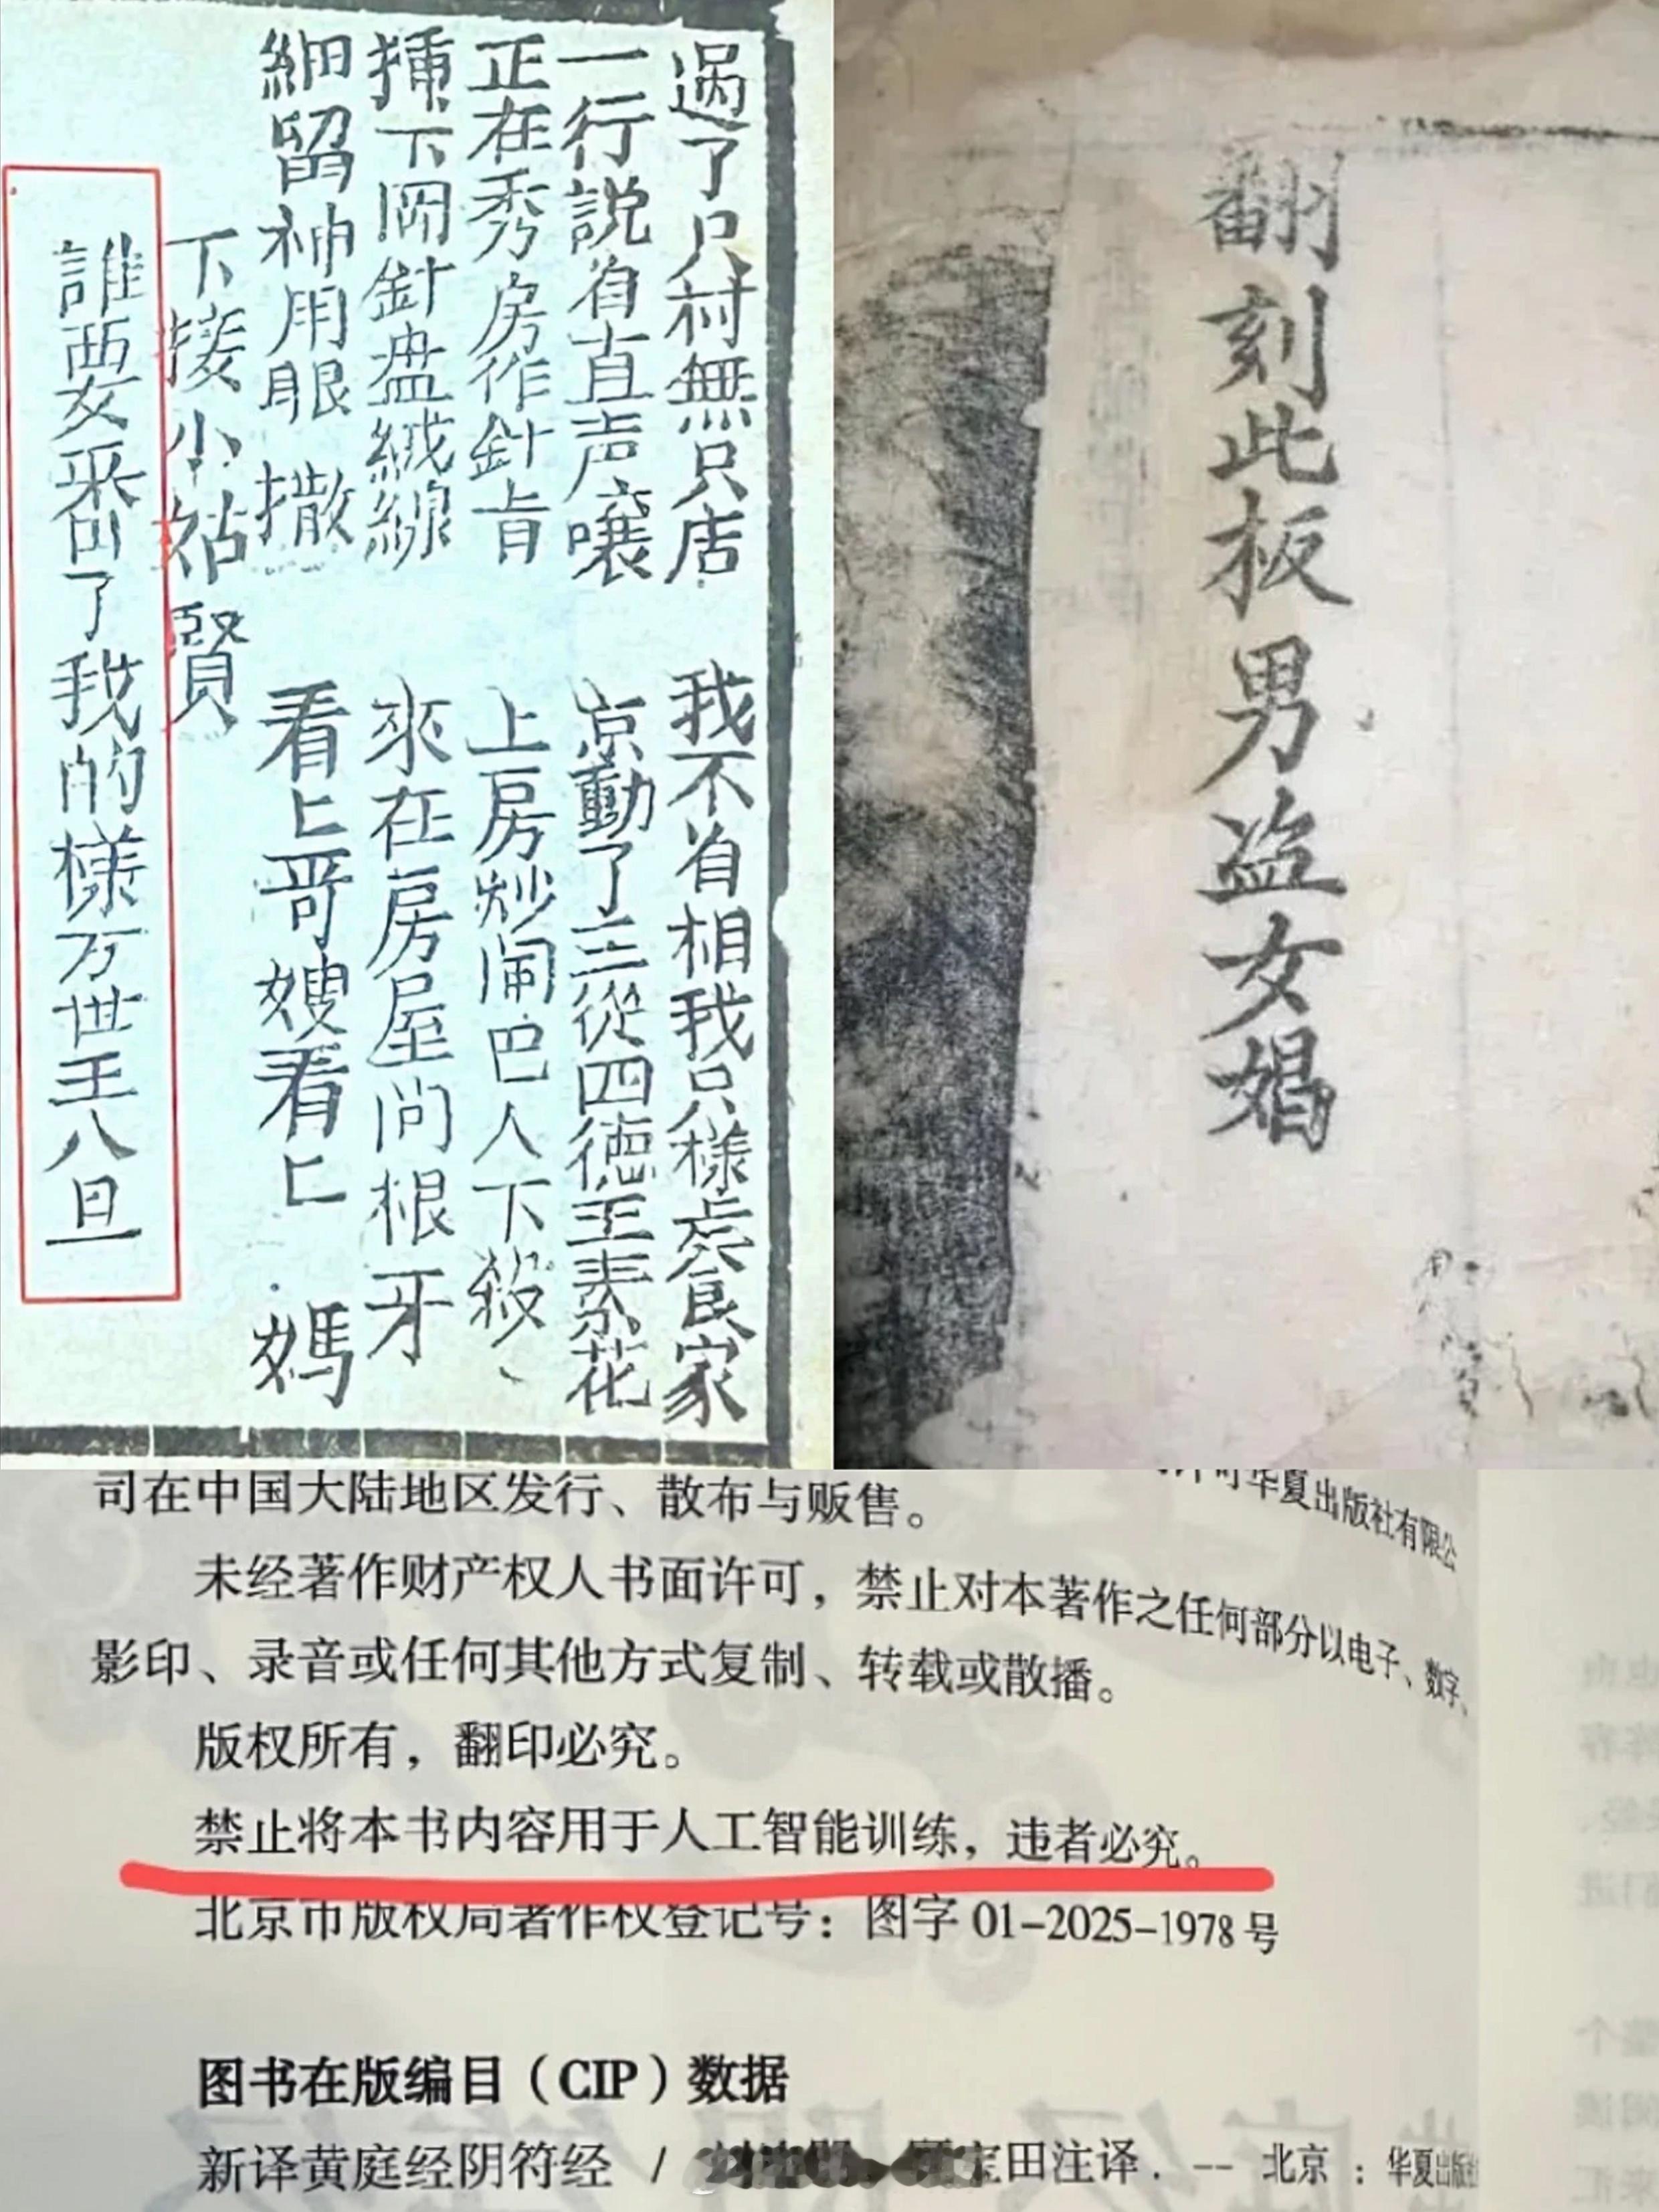 過了只村無只店 我不省相我只樣𠧧食家
一行說省直声嚷 京動了三從四德王素花
正在秀房作針肯 上房炒闹巴人下殺
揰下岡針盘絨線 來在房屋问根牙
細留神用眼撒 看匕哥嫂看匕媽
下接小姑賢
誰要番了我的樣万世王八旦
翻刻此板男盗女娼
司在中国大陆地区发行、散布与贩售。
可华夏出版社有限公
未经著作财产权人书面许可，禁止对本著作之任何部分以电子、数字、
影印、录音或任何其他方式复制、转载或散播。
版权所有，翻印必究。
禁止将本书内容用于人工智能训练，违者必究。
北京市版权局著作权登记号：图字 01-2025-1978 号
图书在版编目（CIP）数据
新译黄庭经阴符经 / 宝田注译. -- 北京：华夏出版